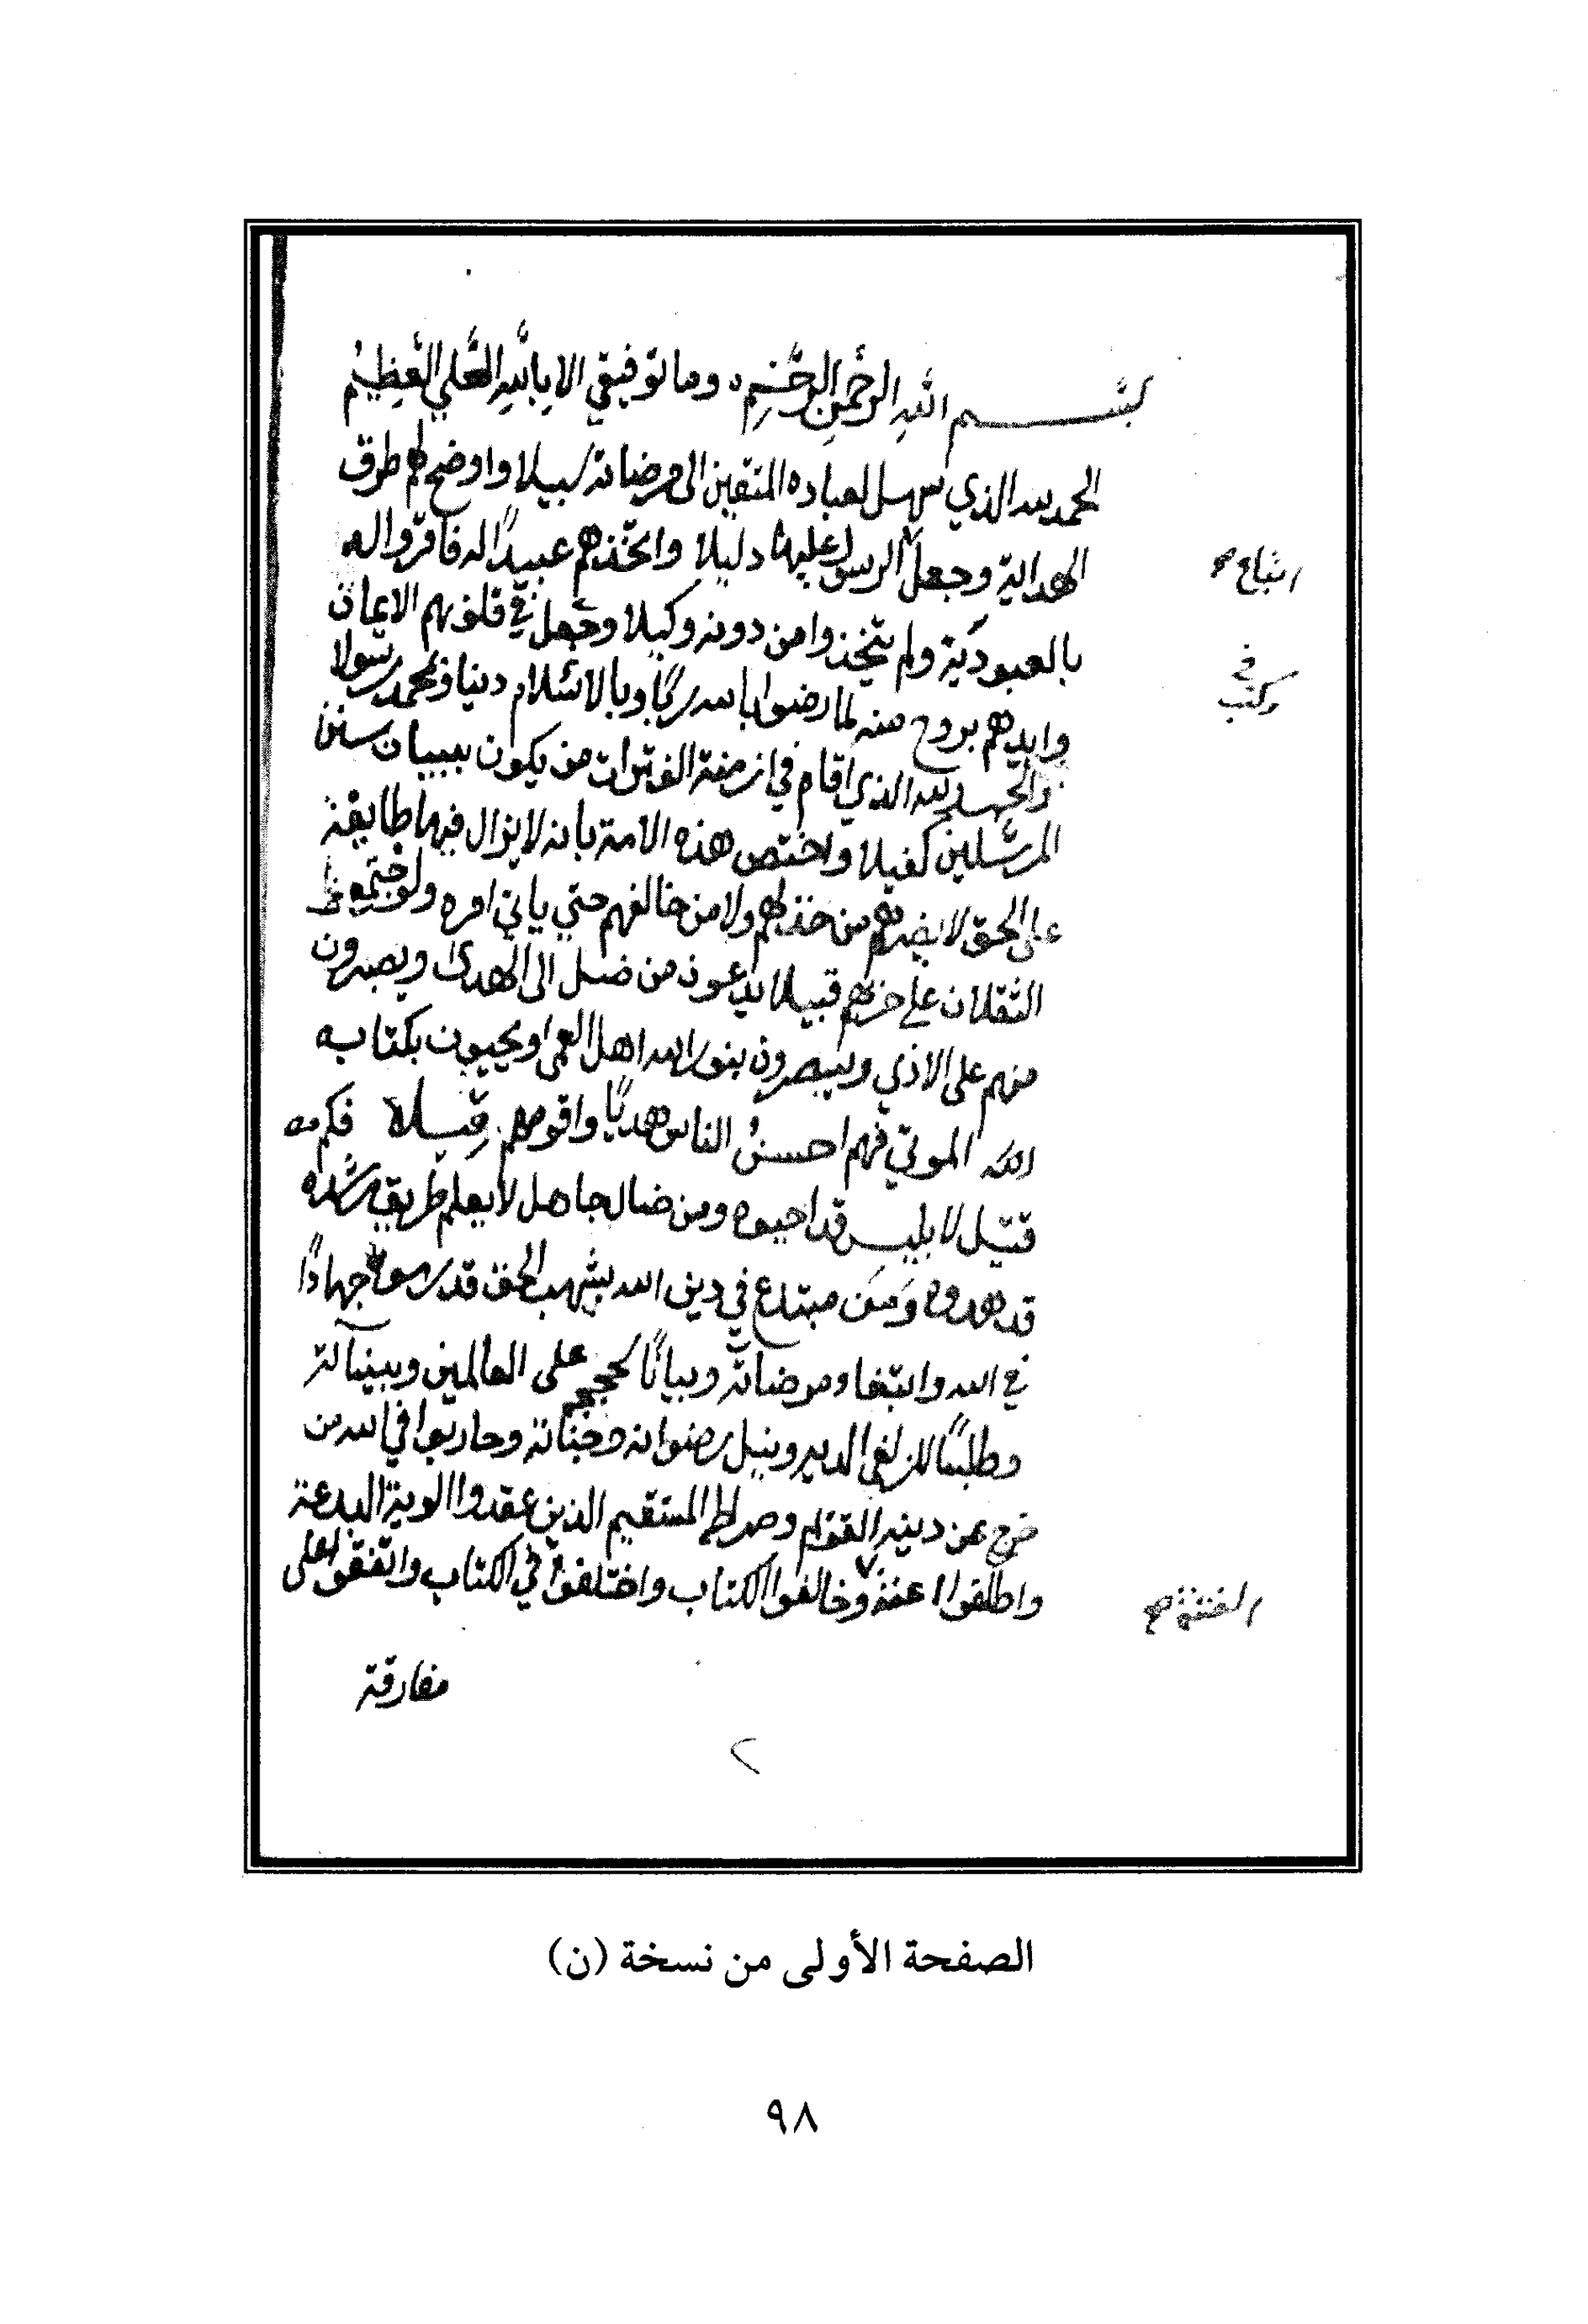 بسم الله الرحمن الرحيم ه وما توفيقي الا بالله العلي العظيم
الحمد لله الذي سهل لعباده المتقين الى مرضاته سبيلا واوضح لهم طرق
الهداية وجعل الرسول عليها دليلا واتخذهم عبيدًا له فاقروا له
اتباع صح
بالعبودية ولم يتخذوا من دونه وكيلا وجعل في قلوبهم الايمان
وكتب في
وايدهم بروح منه لما رضوا بالله ربًا وبالاسلام دينا وبمحمد رسولا
والحمد لله الذي اقام في ازمنة الفترات من يكون ببيان سنن
المرسلين كفيلا واختص هذه الامة بانه لا يزال فيها طايفة
على الحق لا يضرهم من خذلهم ولا من خالفهم حتي ياتي امره ولو اجتمع
الثقلان علي حزبهم قبيلا يدعون من ضل الى الهدى ويصبرون
منهم على الاذي ويبصرون بنور الله اهل العمى ويحيون بكتابه
الله الموتي فهم احسن الناس هديًا واقومهم قيلا فكم من
قتيل لابليس قد احيوه ومن ضال جاهل لا يعلم طريق رشده
قد هدوه ومن مبتدع في دين الله بشهب الحق قد رموه جهادًا
في الله وابتغاء مرضاته وبيانًا لحججه على العالمين وبيناته
وطلبًا للزلفى لديه ونيل رضوانه وجناته وحاربوا في الله من
خرج عن دينه القويم وصراطه المستقيم الذين عقدوا الوية البدعة
واطلقوا اعنة وخالفوا الكتاب واختلفوا في الكتاب واتفقوا على
الفتنة صح
مفارقة
٢
الصفحة الأولى من نسخة (ن)
٩٨